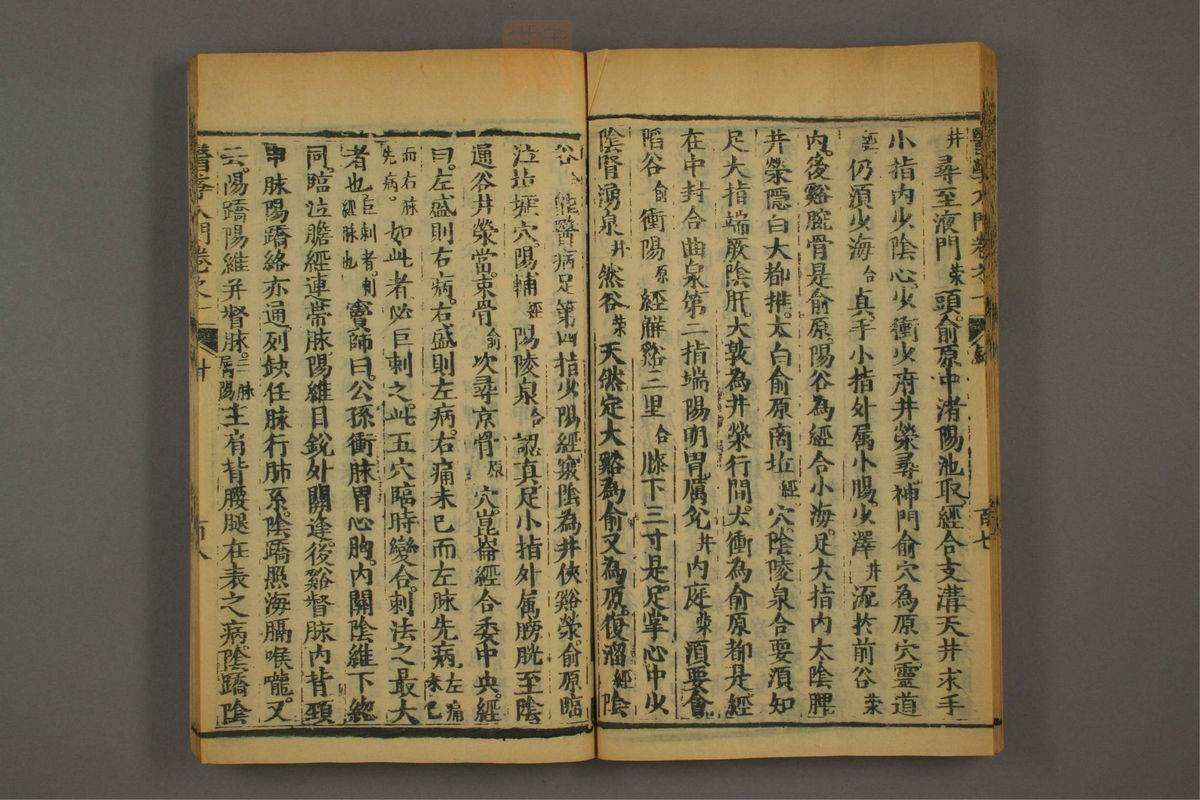 醫學入門卷之一
百七
井尋至液門榮頭俞原中渚陽池取經合支溝天井求手
小指內少陰心少衝火府井榮尋神門俞穴為原穴靈道
經仍湏少海合真手小指外属小腸少澤井流於前谷榮
內後谿腕骨是俞原陽谷為經合小海足大指內太陰脾
井榮隱白大都推太白俞原商丘經穴陰陵泉合要湏知
足大指端厥陰肝大敦為井榮行間太衝為俞原都是經
在中封合曲泉第二指端陽明胃厲兌井內庭榮湏要會
陷谷俞衝陽原經解谿三里合膝下三寸是足掌心中少
陰腎湧泉井然谷榮天然定大谿為俞又為原復溜經陰
谷合能醫病足第四指少陽經竅陰為井俠谿榮俞原臨
泣坵墟穴陽輔經陽陵泉合認真足小指外属膀胱至陰
通谷井榮當束骨俞次尋京骨原穴崑崙經合委中央經
曰左盛則右病右盛則左病右痛未已而左脉先病左痛未已
而右脉先病如此者必巨刺之此五穴臨時變合刺法之最大
者也巨刺者刺經脉也竇師曰公孫衝脉胃心胸內關陰維下緫
同臨泣膽經連帶脉陽維目銳外關逢後谿督脉內背頸
申脉陽蹻絡亦通列缺任脉行肺系陰蹻照海膈喉嚨又
云陽蹻陽維并督脉三脉属陽主肩背腰腿在表之病陰蹻陰
醫學入門卷之一
百八